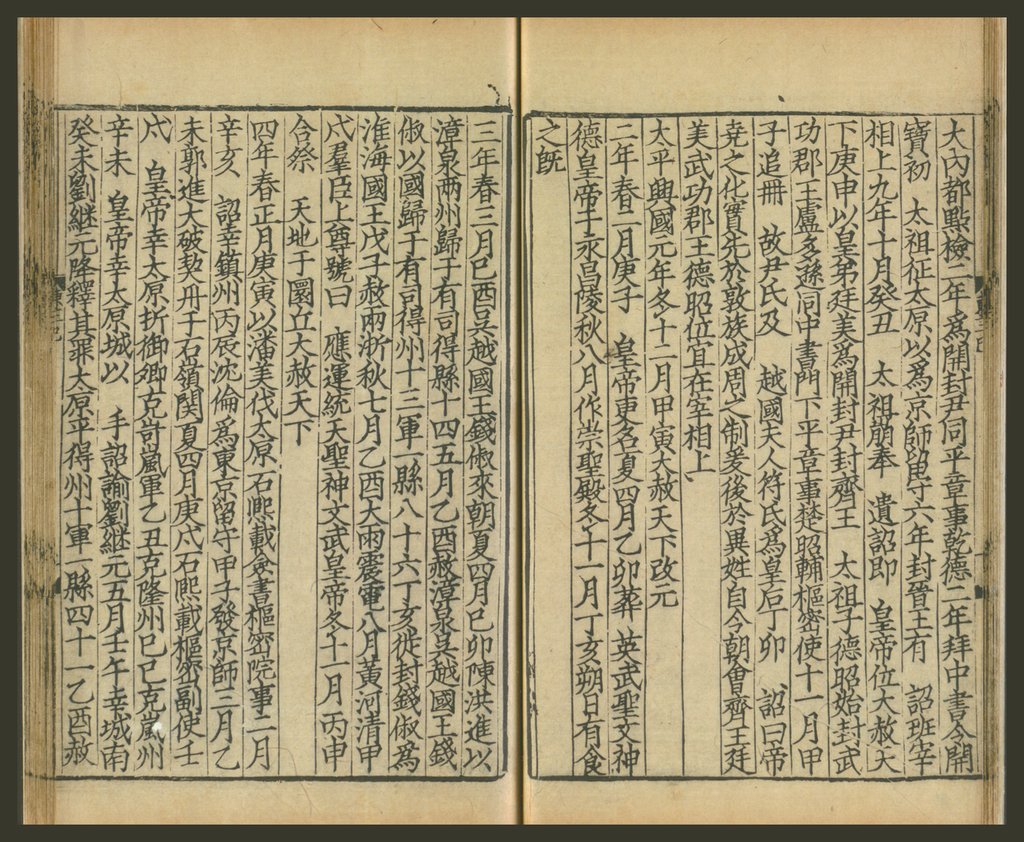 大內都點檢二年爲開封尹同平章事乾德二年拜中書令開
寶初　太祖征太原以爲京師留守六年封晉王有　詔班宰
相上九年十月癸丑　太祖崩奉　遺詔即　皇帝位大赦天
下庚申以皇弟廷美爲開封尹封齊王　太祖子德昭始封武
功郡王盧多遜同中書門下平章事楚昭輔樞密使十一月甲
子追冊　故尹氏及　越國夫人符氏爲皇后丁卯　詔曰帝
堯之化實先於敦族成周之制爰後於異姓自今朝會齊王廷
美武功郡王德昭位宜在宰相上
太平興國元年冬十二月甲寅大赦天下改元
二年春二月庚子　皇帝更名夏四月乙卯葬　英武聖文神
德皇帝于永昌陵秋八月作崇聖殿冬十一月丁亥朔日有食
之旣
三年春三月己酉吳越國王錢俶來朝夏四月己卯陳洪進以
漳泉兩州歸于有司得縣十四五月乙酉赦漳泉吳越國王錢
俶以國歸于有司得州十三軍一縣八十六丁亥徙封錢俶爲
淮海國王戊子赦兩浙秋七月乙酉大雨震電八月黃河清甲
戌羣臣上尊號曰　應運統天聖神文武皇帝冬十一月丙申
合祭　天地于圜丘大赦天下
四年春正月庚寅以潘美伐太原石熙載僉書樞密院事二月
辛亥　詔幸鎭州丙辰沈倫爲東京留守甲子發京師三月乙
未郭進大破契丹于石嶺関夏四月庚戌石熙載樞密副使壬
戌　皇帝幸太原折御卿克岢嵐軍乙丑克隆州己巳克嵐州
辛未　皇帝幸太原城以　手詔諭劉継元五月壬午幸城南
癸未劉継元降釋其罪太原平得州十軍一縣四十一乙酉赦